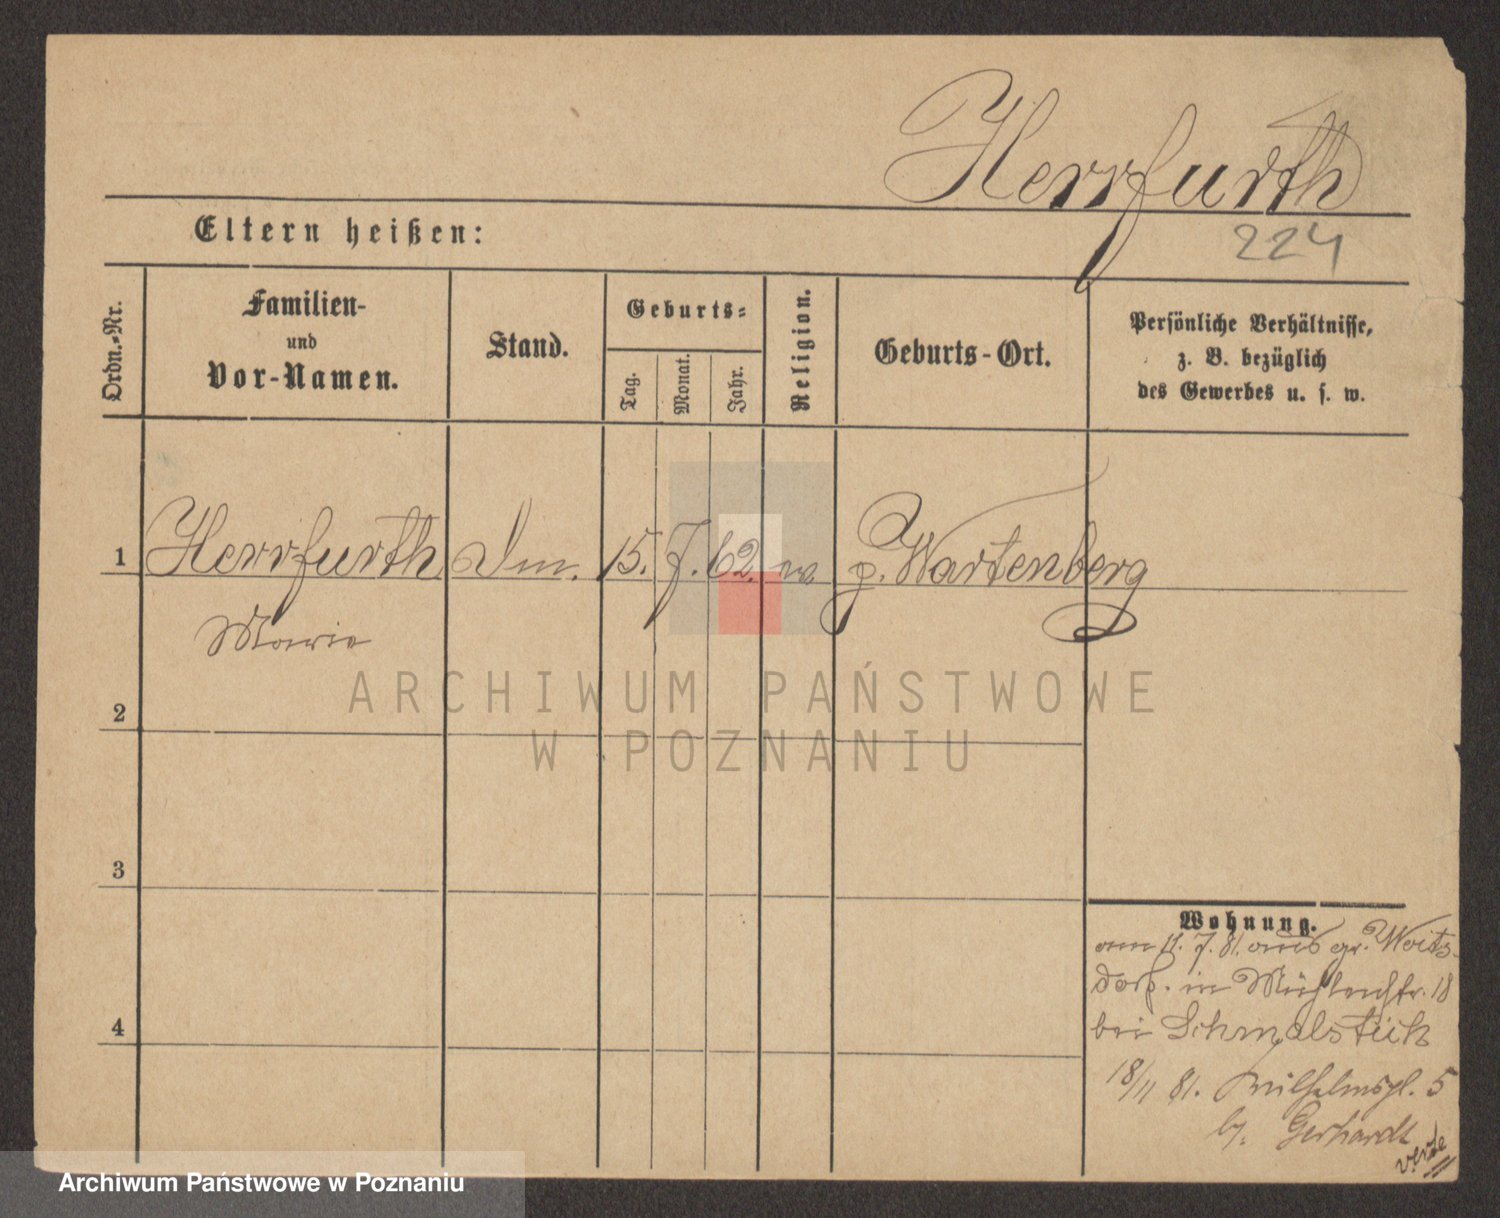 Herrfurth
Eltern heißen:
224
Ordn.-Nr.
Familien-
und
Vor-Namen.
Stand.
Geburts-
Tag.
Monat.
Jahr.
Religion.
Geburts-Ort.
Persönliche Verhältnisse,
z. B. bezüglich
des Gewerbes u. s. w.
1 Herrfurth 15. 7. 62. p. Wartenberg
Marie
2
3
4
Wohnung.
am 11. 7. 81. aus gr. Woits-
dorf. in Mühlenstr. 18
bei Schmalstück
18/11 81. Wilhelmspl. 5
by. Gerhardt
verte
ARCHIWUM PAŃSTWOWE
W POZNANIU
Archiwum Państwowe w Poznaniu